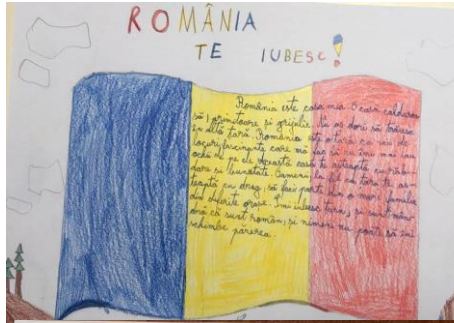 ROMÂNIA
TE IUBESC!
România este casa mea. O casă călduroa-
să, primitoare și grijulie. Nu aș dori să trăiesc
în altă țară. România este o țară cu mii de
locuri fascinante care mă fac să nu îmi mai iau
ochii de pe ele. Această casă te așteaptă cu răb-
dare și bunătate. Oamenii la fel ca țara te aș-
teaptă cu drag, să faci parte din o mare familie
din diferite orașe. Îmi iubesc țara, și sunt mân-
dră că sunt român, și nimeni nu poate să îmi
schimbe părerea.